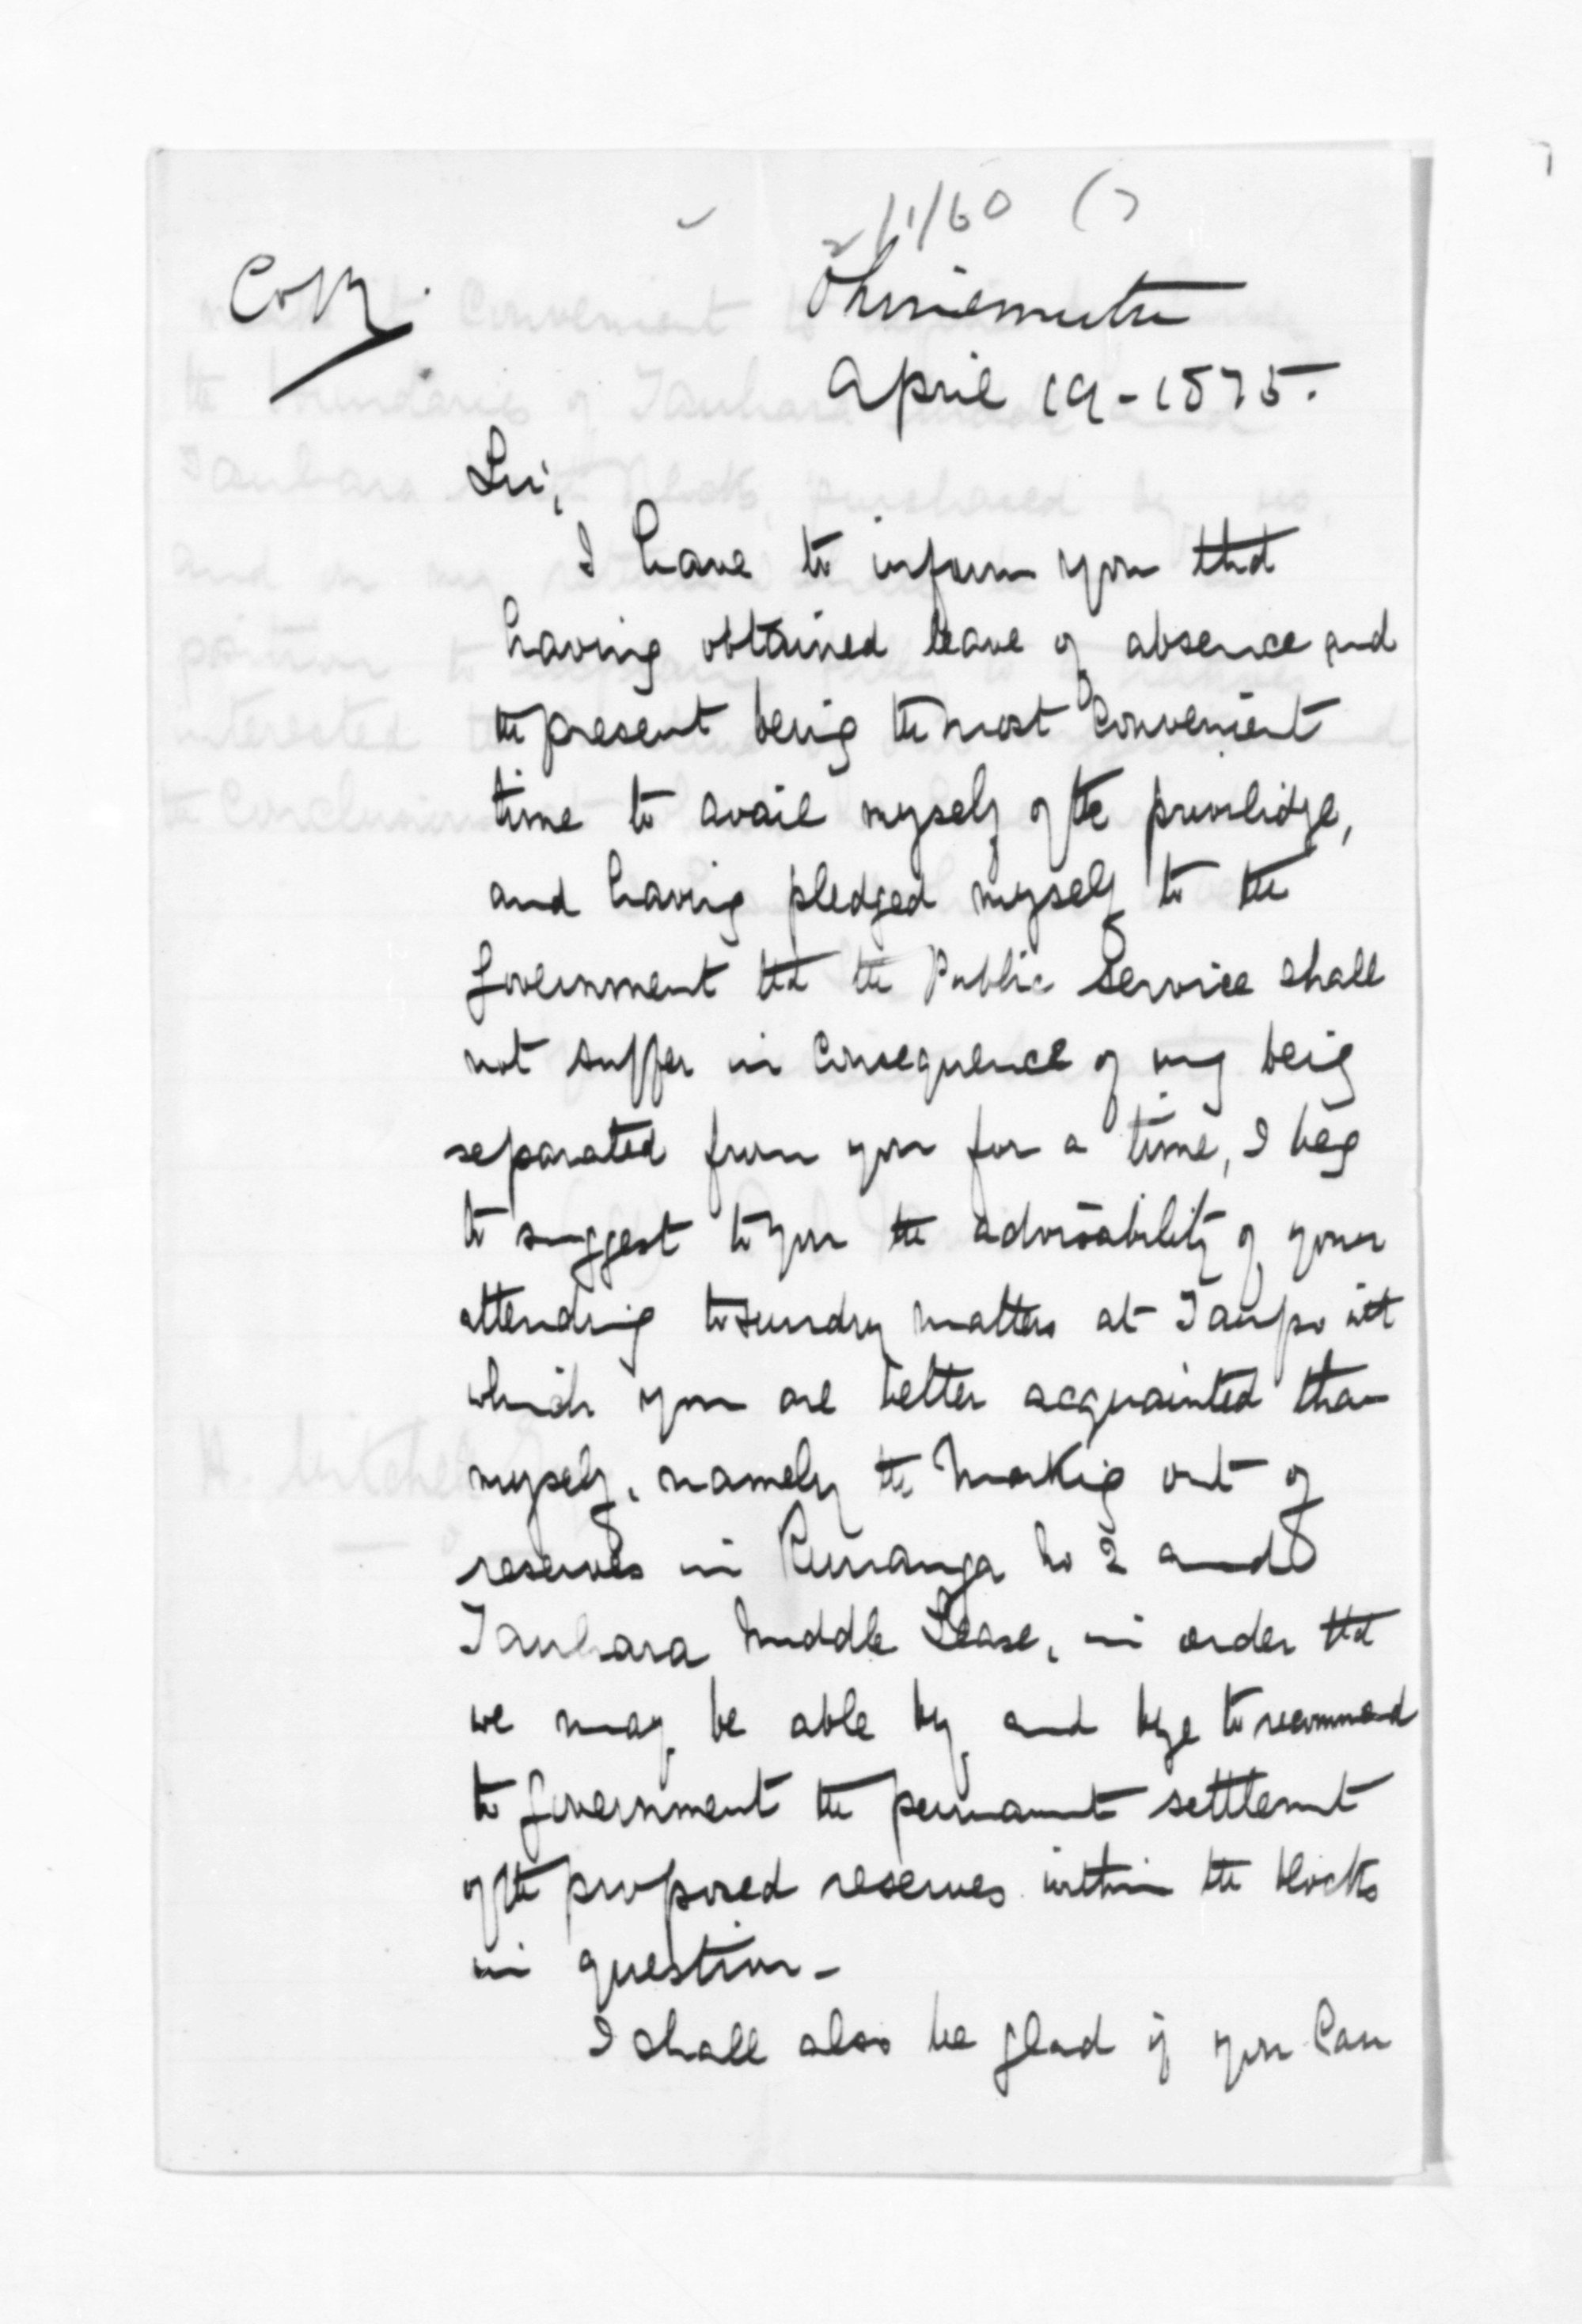 2/1/60 ( )
Copy.
Ohinemutu
April 19 - 1875.
Sir,
I have to inform you that
having obtained leave of absence and
the present being the most Convenient
time to avail myself of the privilidge,
and having pledged myself to the
Government that the Public Service shall
not suffer in Consequence of my being
separated from you for a time, I beg
to suggest to you the advisability of your
attending to sundry matters at Taupo with
which you are better acquainted than
myself, namely the Marking out of
reserves in Runanga No 2 and
Tauhara Middle Lease, in order that
we may be able by and bye to recommend
to Government the permanent settlement
of the proposed reserves within the blocks
in question -
I shall also be glad if you Can